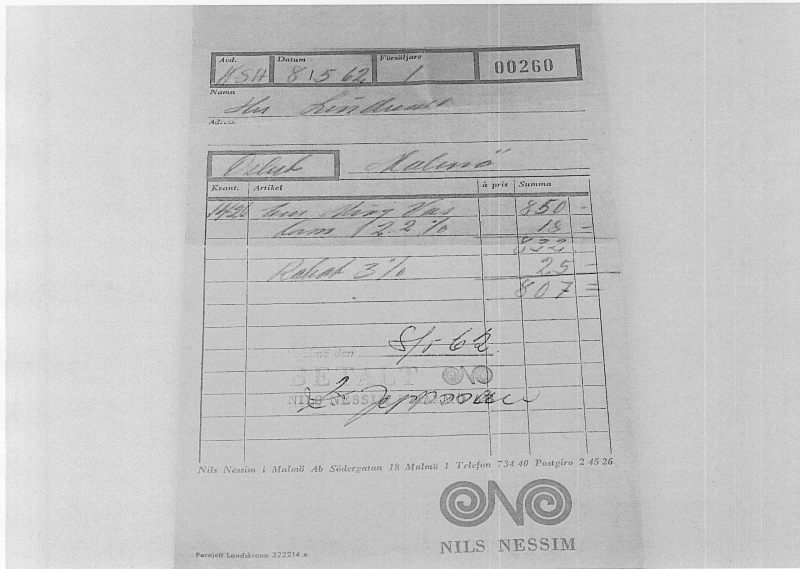 Avd. Datum Försäljare
KSH 8/5 62 1 00260
Namn
Hr
Adress
Malmö
Kvant. Artikel à pris Summa
Ming Vas 850 -
2.2 % 18 =
832
Rabat 3 % 25 -
807 =
8/5 62
BETALT
NILS NESSIM
Nils Nessim i Malmö Ab Södergatan 18 Malmö 1 Telefon 734 40 Postgiro 2 45 26
NILS NESSIM
Parajett Landskrona 322214 a